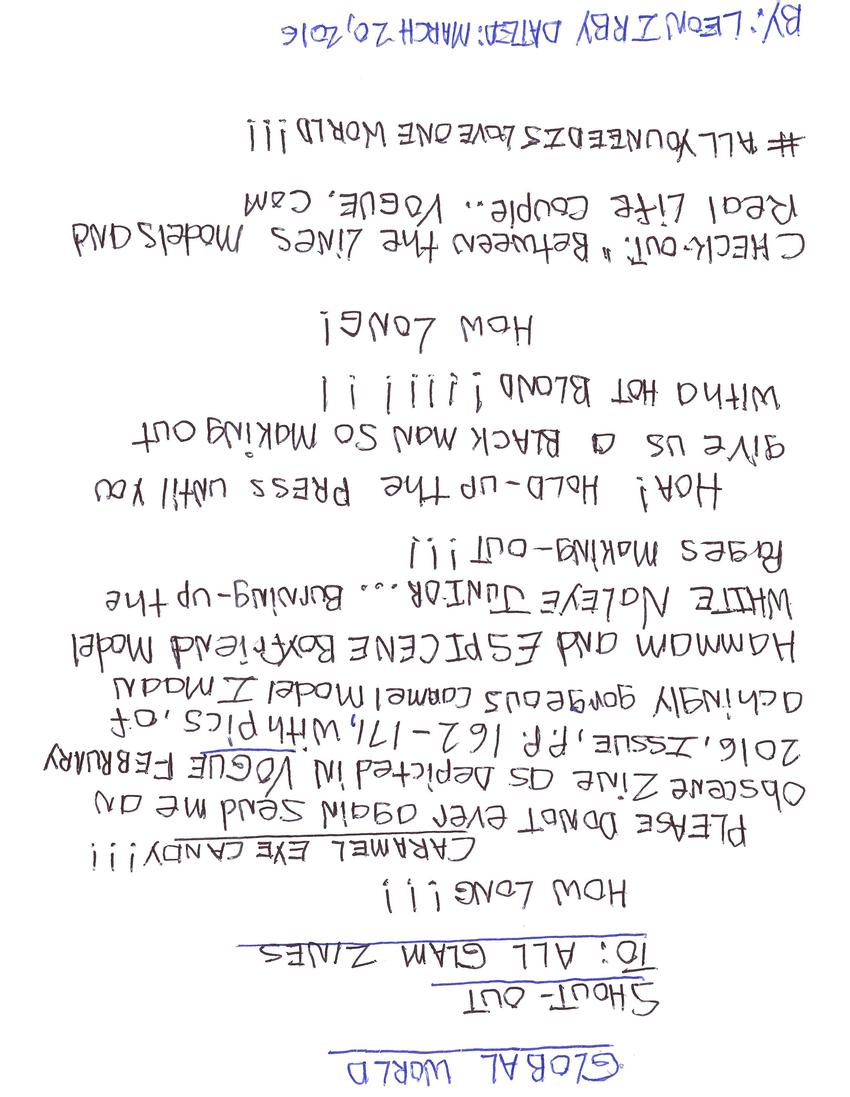 GLOBAL WORLD
SHOUT-OUT
TO: ALL GLAM ZINES
HOW LONG!!!
CARAMEL EYE CANDY!!!
PLEASE DO NOT EVER again SEND me an
Obscene Zine as Depicted in VOGUE FEBRUARY
2016, ISSUE, P.P. 162-171, with pics, of
achingly gorgeous carmel model Imaan
Hammam and ESPICENE Boyfriend Model
WHITE NaleyE JUNIOR... Burning-up the
Pages Making-out!!!
HOA! HOLD-up the PRESS until you
give us a BLACK Man SO Making out
with a HOT BLOND!!!!!!!
HOW LONG!
CHECK-OUT: "Between the Lines Models and
Real Life Couple.. VOGUE. COM
# ALLYOUNEEDISLOVEONE WORLD!!!
BY: LEON IRBY DATED: MARCH 20, 2016